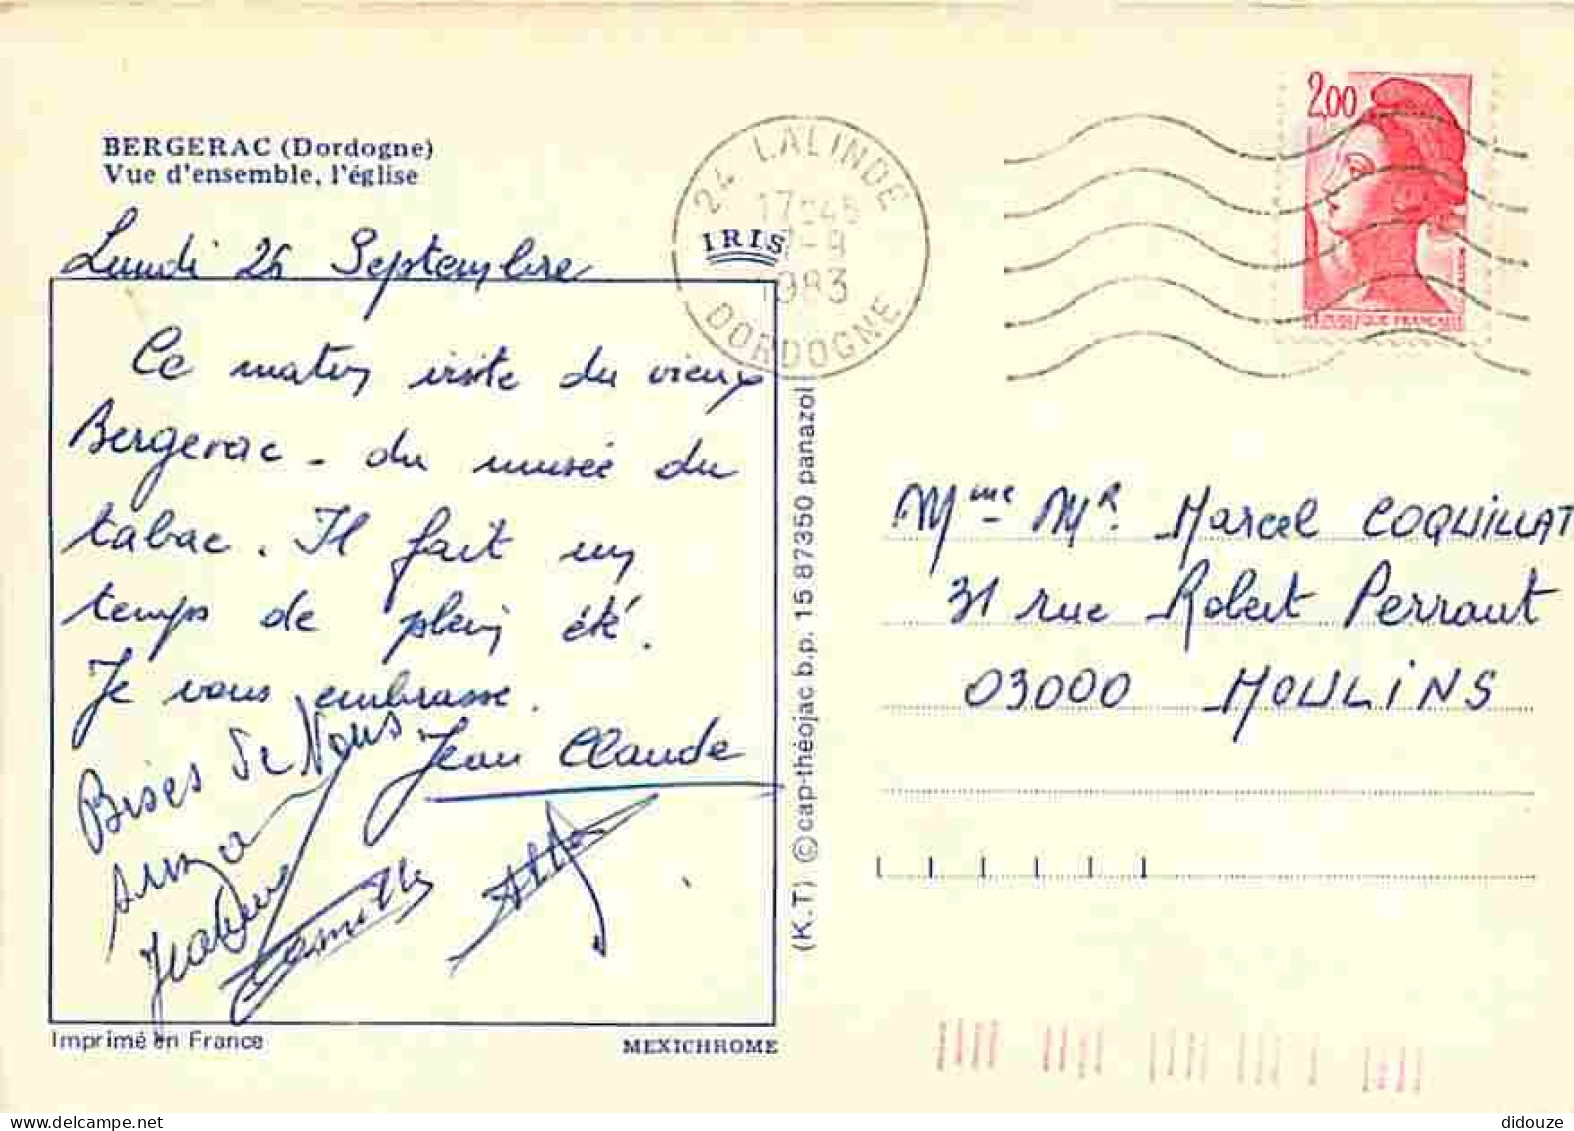 BERGERAC (Dordogne)
Vue d'ensemble, l'église
Lundi 26 Septembre
Ce matin visite du vieux
Bergerac - du musée du
tabac. Il fait un
temps de plein été.
Je vous embrasse.
Jean Claude
Bises de Nous
Camille
Imprimé en France
MEXICHROME
IRIS
(K.T) © cap-théojac b.p. 15 87350 panazol
24 LALINDE
1983
DORDOGNE
2,00
REPUBLIQUE FRANÇAISE
Mme Mr Marcel COQUILLAT
31 rue Robert Perraut
03000 MOULINS
didouze